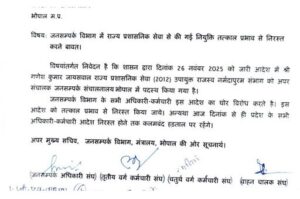 भोपाल म.प्र.
विषय: जनसम्पर्क विभाग में राज्य प्रशासनिक सेवा से की गई नियुक्ति तत्काल प्रभाव से निरस्त
करने बावत।
विषयांतर्गत निवेदन है कि शासन द्वारा दिनांक 26 नवंबर 2025 को जारी आदेश में श्री
गणेश कुमार जायसवाल राज्य प्रशासनिक सेवा (2012) उपायुक्त राजस्व नर्मदापुरम संभाग को अपर
संचालक जनसंपर्क संचालनालय भोपाल में पदस्थ किया गया है।
जनसम्पर्क के सभी अधिकारी-कर्मचारी इस आदेश का घोर विरोध करते है। इस
आदेश को तत्काल प्रभाव से निरस्त किया जाये। अन्यथा आज दिनांक से ही प्रदेश के सभी
अधिकारी-कर्मचारी आदेश निरस्त होने तक कलमबंद हड़ताल पर रहेंगे।
अपर मुख्य सचिव, जनसम्पर्क विभाग, मंत्रालय, भोपाल की ओर सूचनार्थ।
(जनसम्पर्क अधिकारी संघ) (तृतीय वर्ग कर्मचारी संघ) (चतुर्थ वर्ग कर्मचारी संघ) (वाहन चालक संघ)